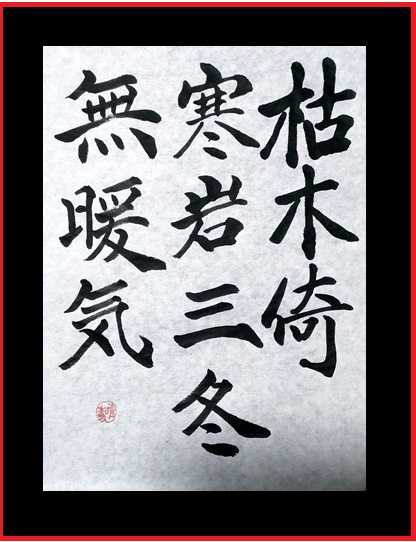 枯木倚
寒岩三冬
無暖気